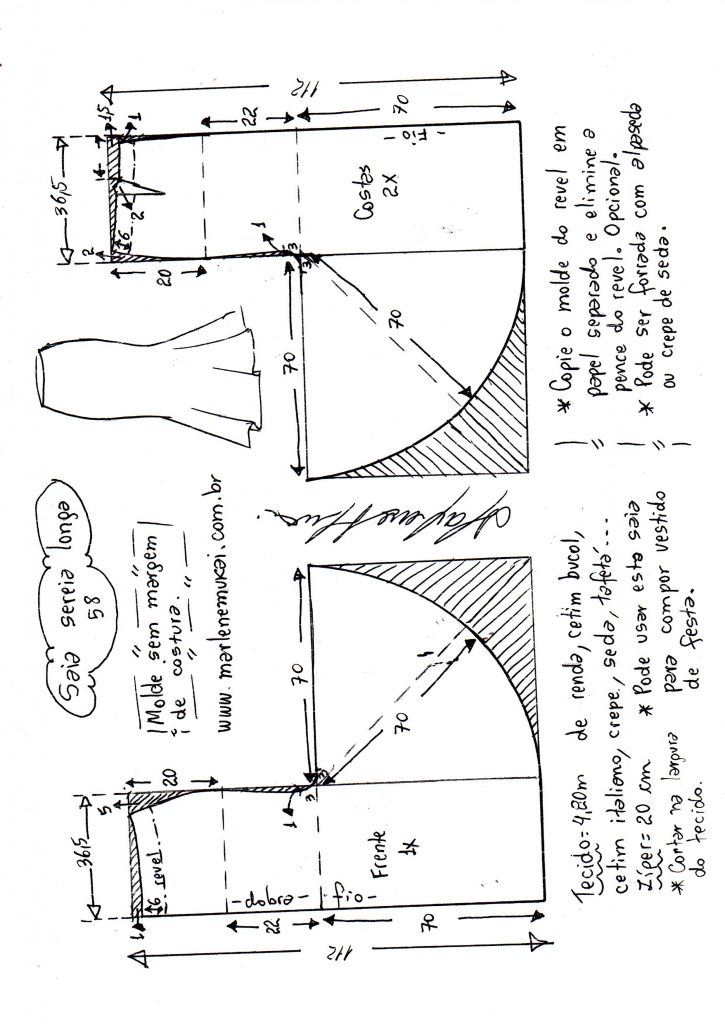 Saia sereia longa
58
Molde sem margem
de costura.
www.marlenemukai.com.br
36,5
5
20
1
6
revel
1
3
3
70
70
Frente
1x
dobra
fio
22
70
112
36,5
2
6
2
4
1,5
1
20
1
3
3
70
70
Costas
2x
Fio
22
70
112
Tecido = 4,20m de renda, cetim bucol,
cetim italiano, crepe, seda, tafetá....
Zíper = 20 cm
* Cortar na largura
do tecido.
* Pode usar esta saia
para compor vestido
de festa.
* Copie o molde do revel em
papel separado e elimine a
pence do revel. Opcional.
* Pode ser forrada com alpaseda
ou crepe de seda.